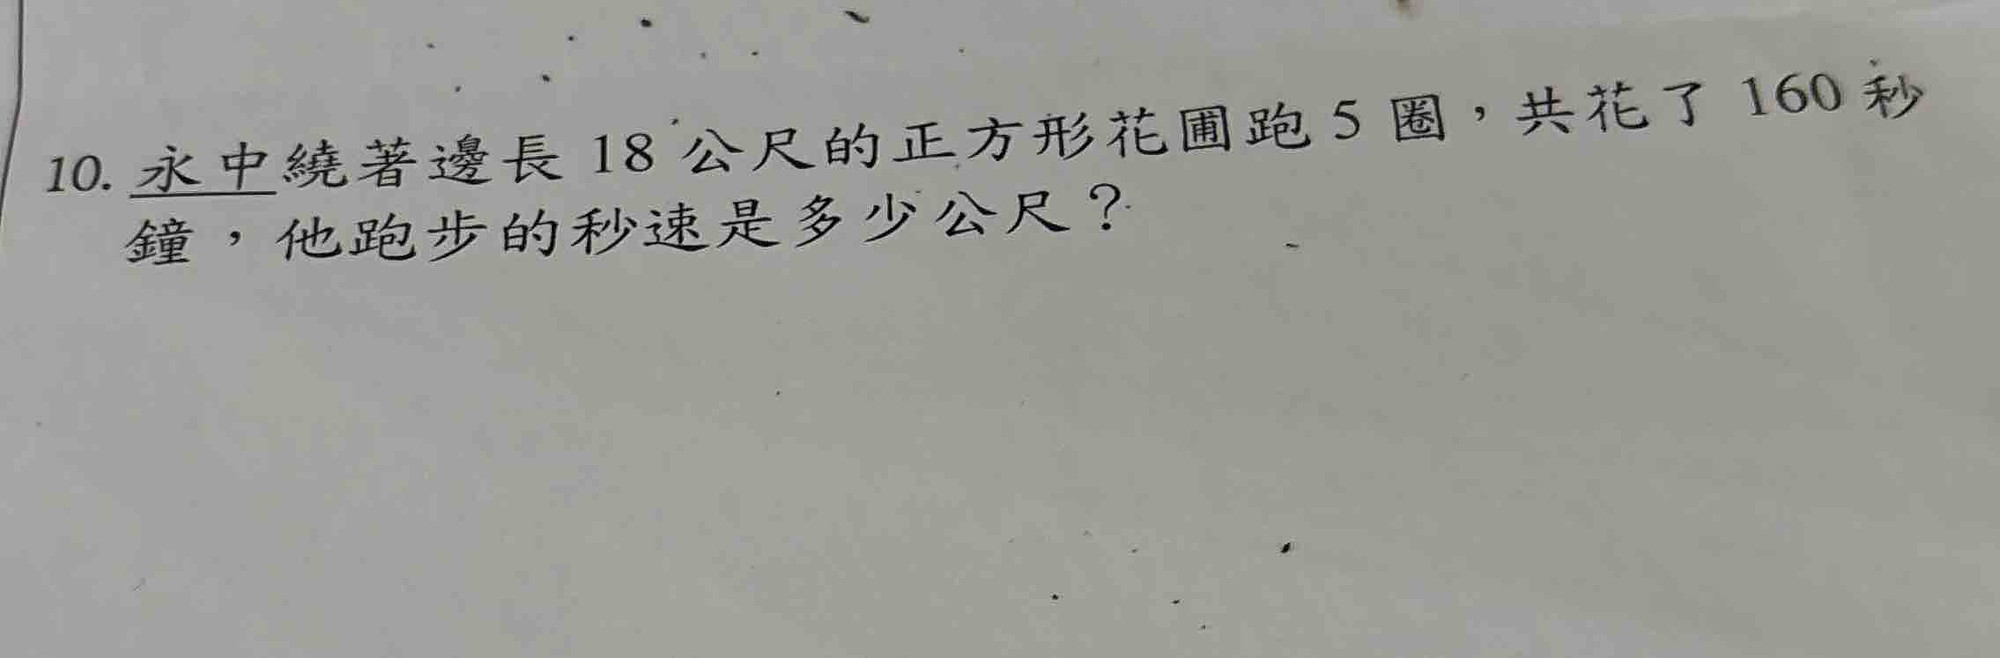 10. 永中繞著邊長 18 公尺的正方形花圃跑 5 圈，共花了 160 秒
鐘，他跑步的秒速是多少公尺？